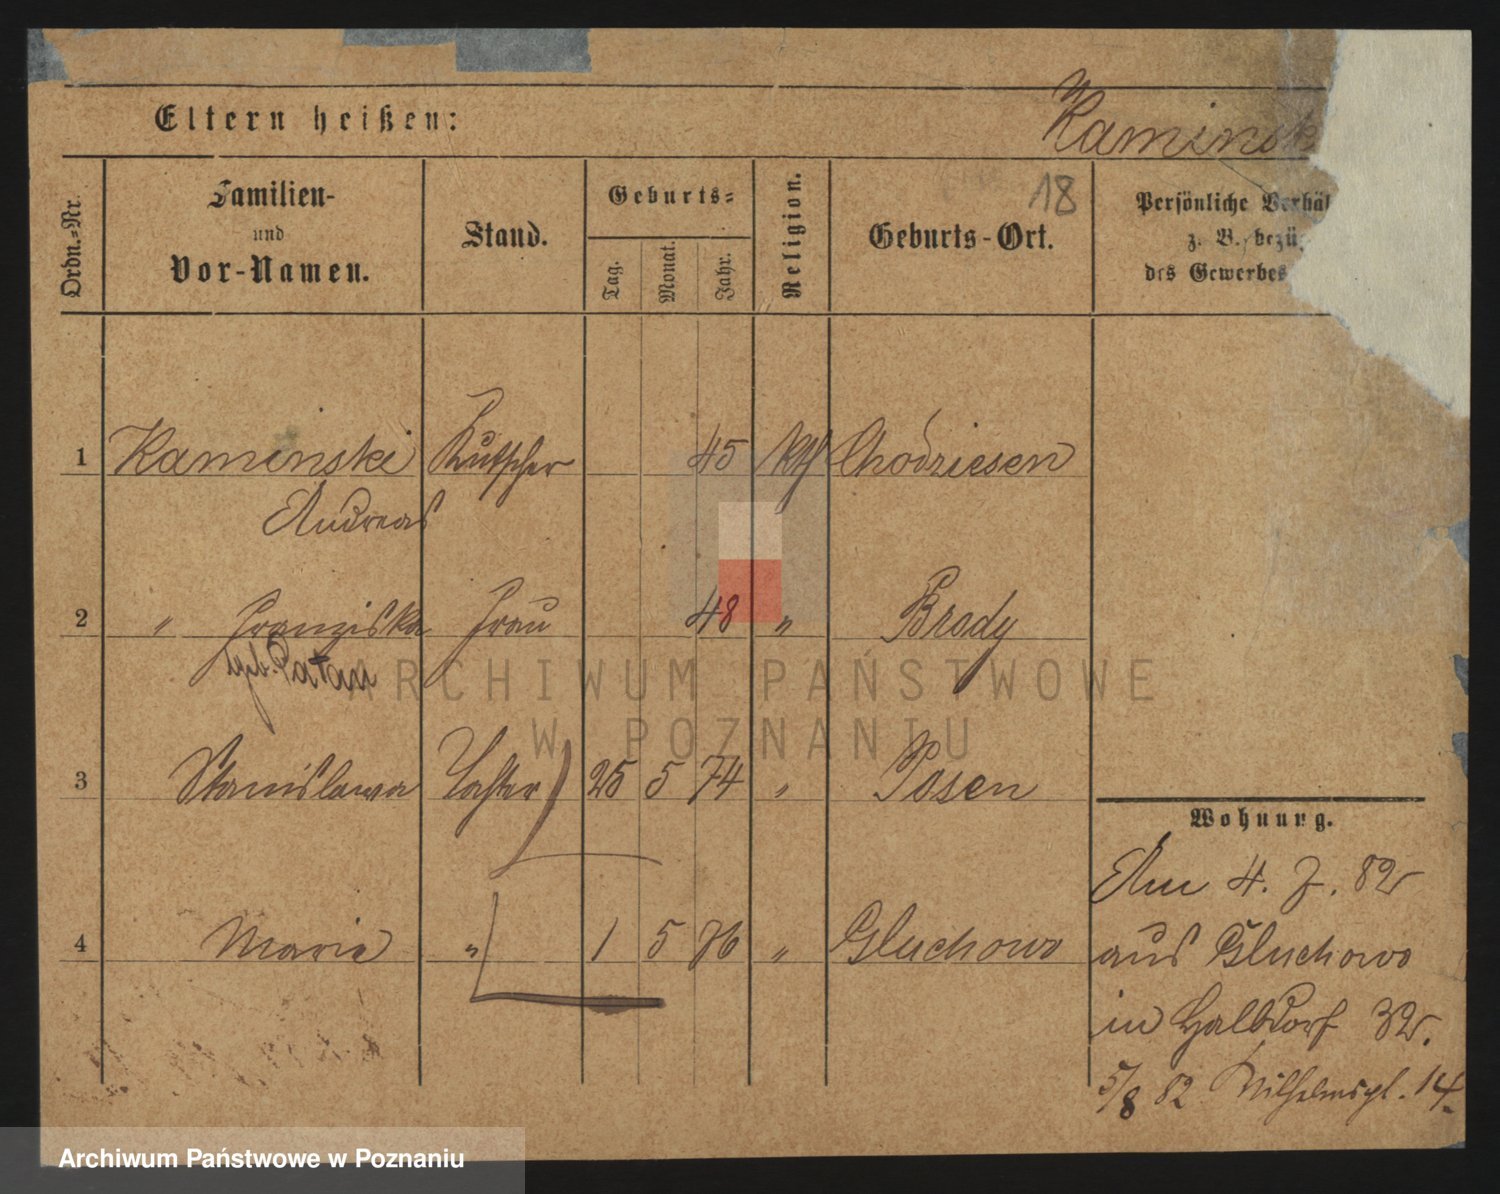 Eltern heißen:
Kaminsk
18
Ordn.-Nr.
Familien-
und
Vor-Namen.
Stand.
Geburts-
Tag.
Monat.
Jahr.
Religion.
Geburts-Ort.
Persönliche Verhäl
z. B. bezü
des Gewerbes
1 Kaminski Kutscher 45 kth Chodziesen
Andreas
2 " Franziska Frau 48 " Brody
geb. Patan
3 Stanislawa Tochter 25 5 74 " Posen
4 Marie " 1 5 76 " Gluchowo
Wohnung.
Am 4. 7. 82
aus Gluchowo
in Halbdorf 32.
5/8 82 Wilhelmspl. 14.
ARCHIWUM PAŃSTWOWE
W POZNANIU
Archiwum Państwowe w Poznaniu